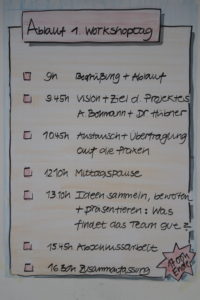 Ablauf 1. Workshoptag
9h Begrüßung + Ablauf
9:45h Vision + Ziel d. Projektes
A. Bohmann + Dr
10:45h Austausch + Übertragung
auf die Praxen
12:10h Mittagspause
13:10h Ideen sammeln, bewerten
+ präsentieren: Was
findet das Team gut?
15:45h Abschlussarbeit
16:30h Zusammenfassung
17:00h
Ende